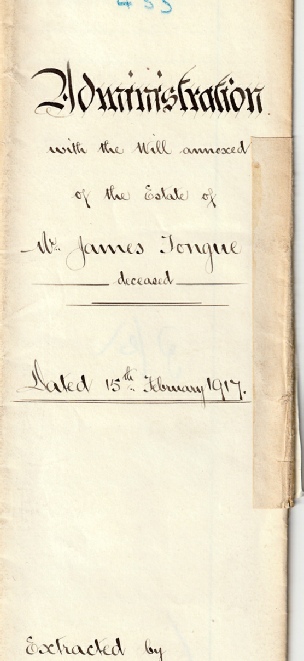 Administration
with the Will annexed
of the Estate of
Mr. James Tongue
deceased
Dated 15th February 1917.
Extracted by